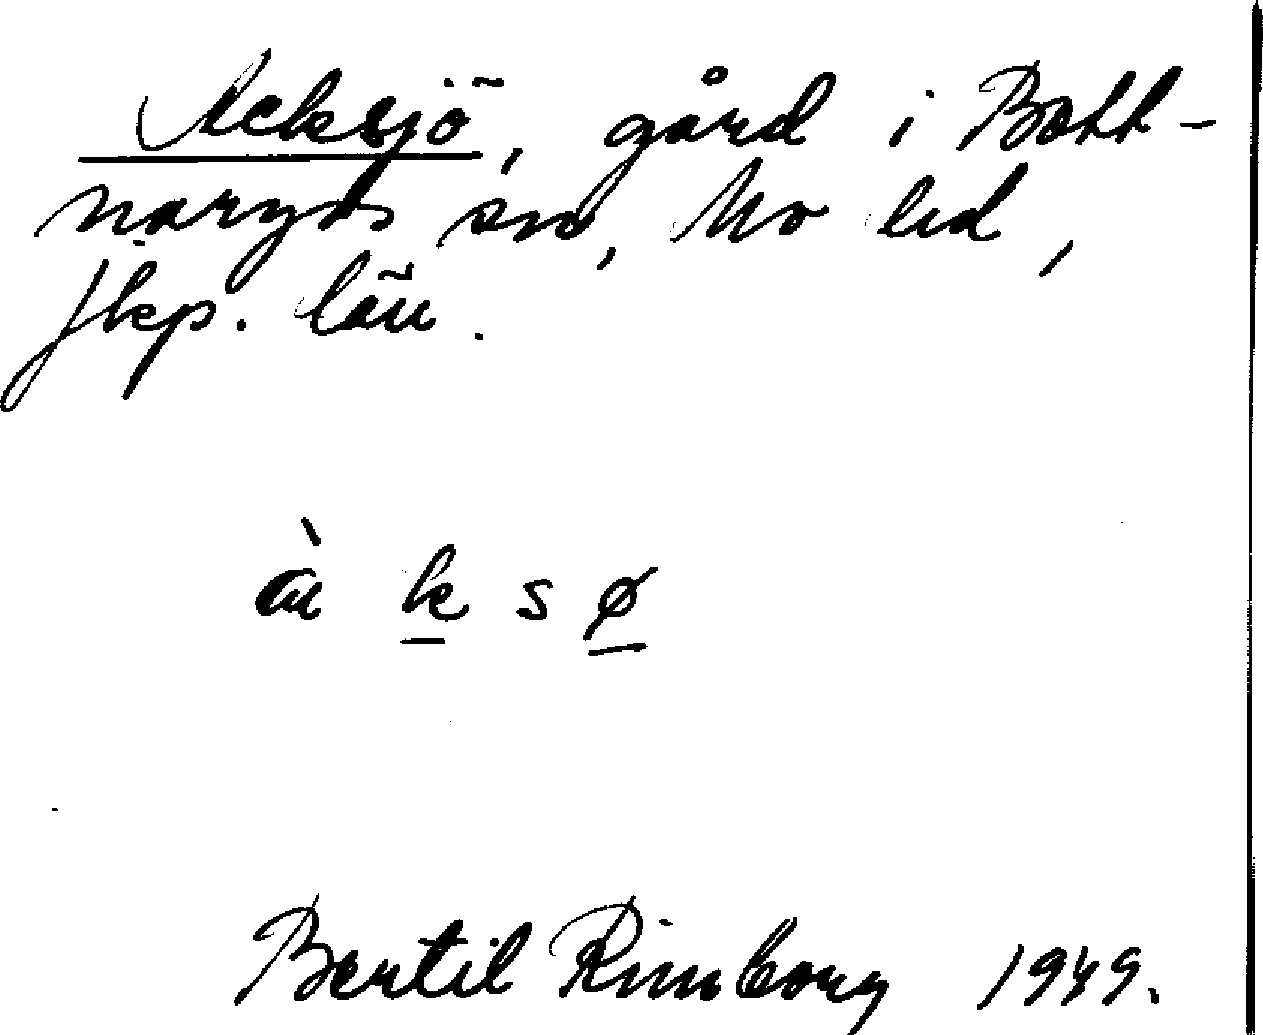 Acksjö, gård i Bott-
naryds sn, Mo hd,
Jkp. län.
à k s ø
Bertil Rimborg 1949.